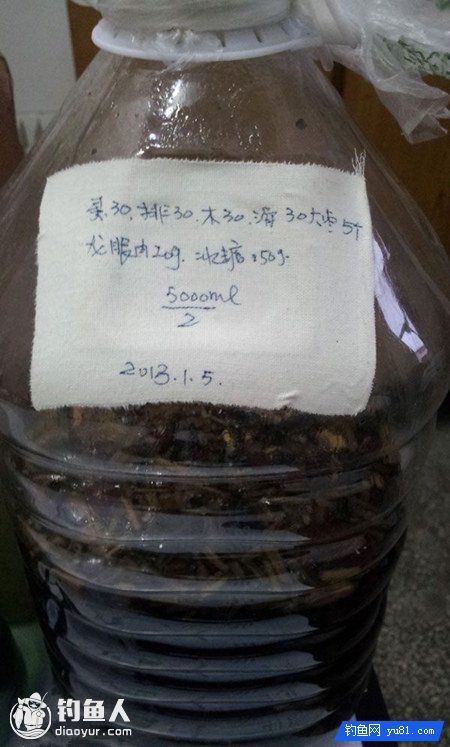 灵30.排30.木30.滑30大枣5个
龙眼肉20g.冰糖150g.
5000ml
2
2013.1.5.
钓鱼人
diaoyur.com
钓鱼网 yu81.com